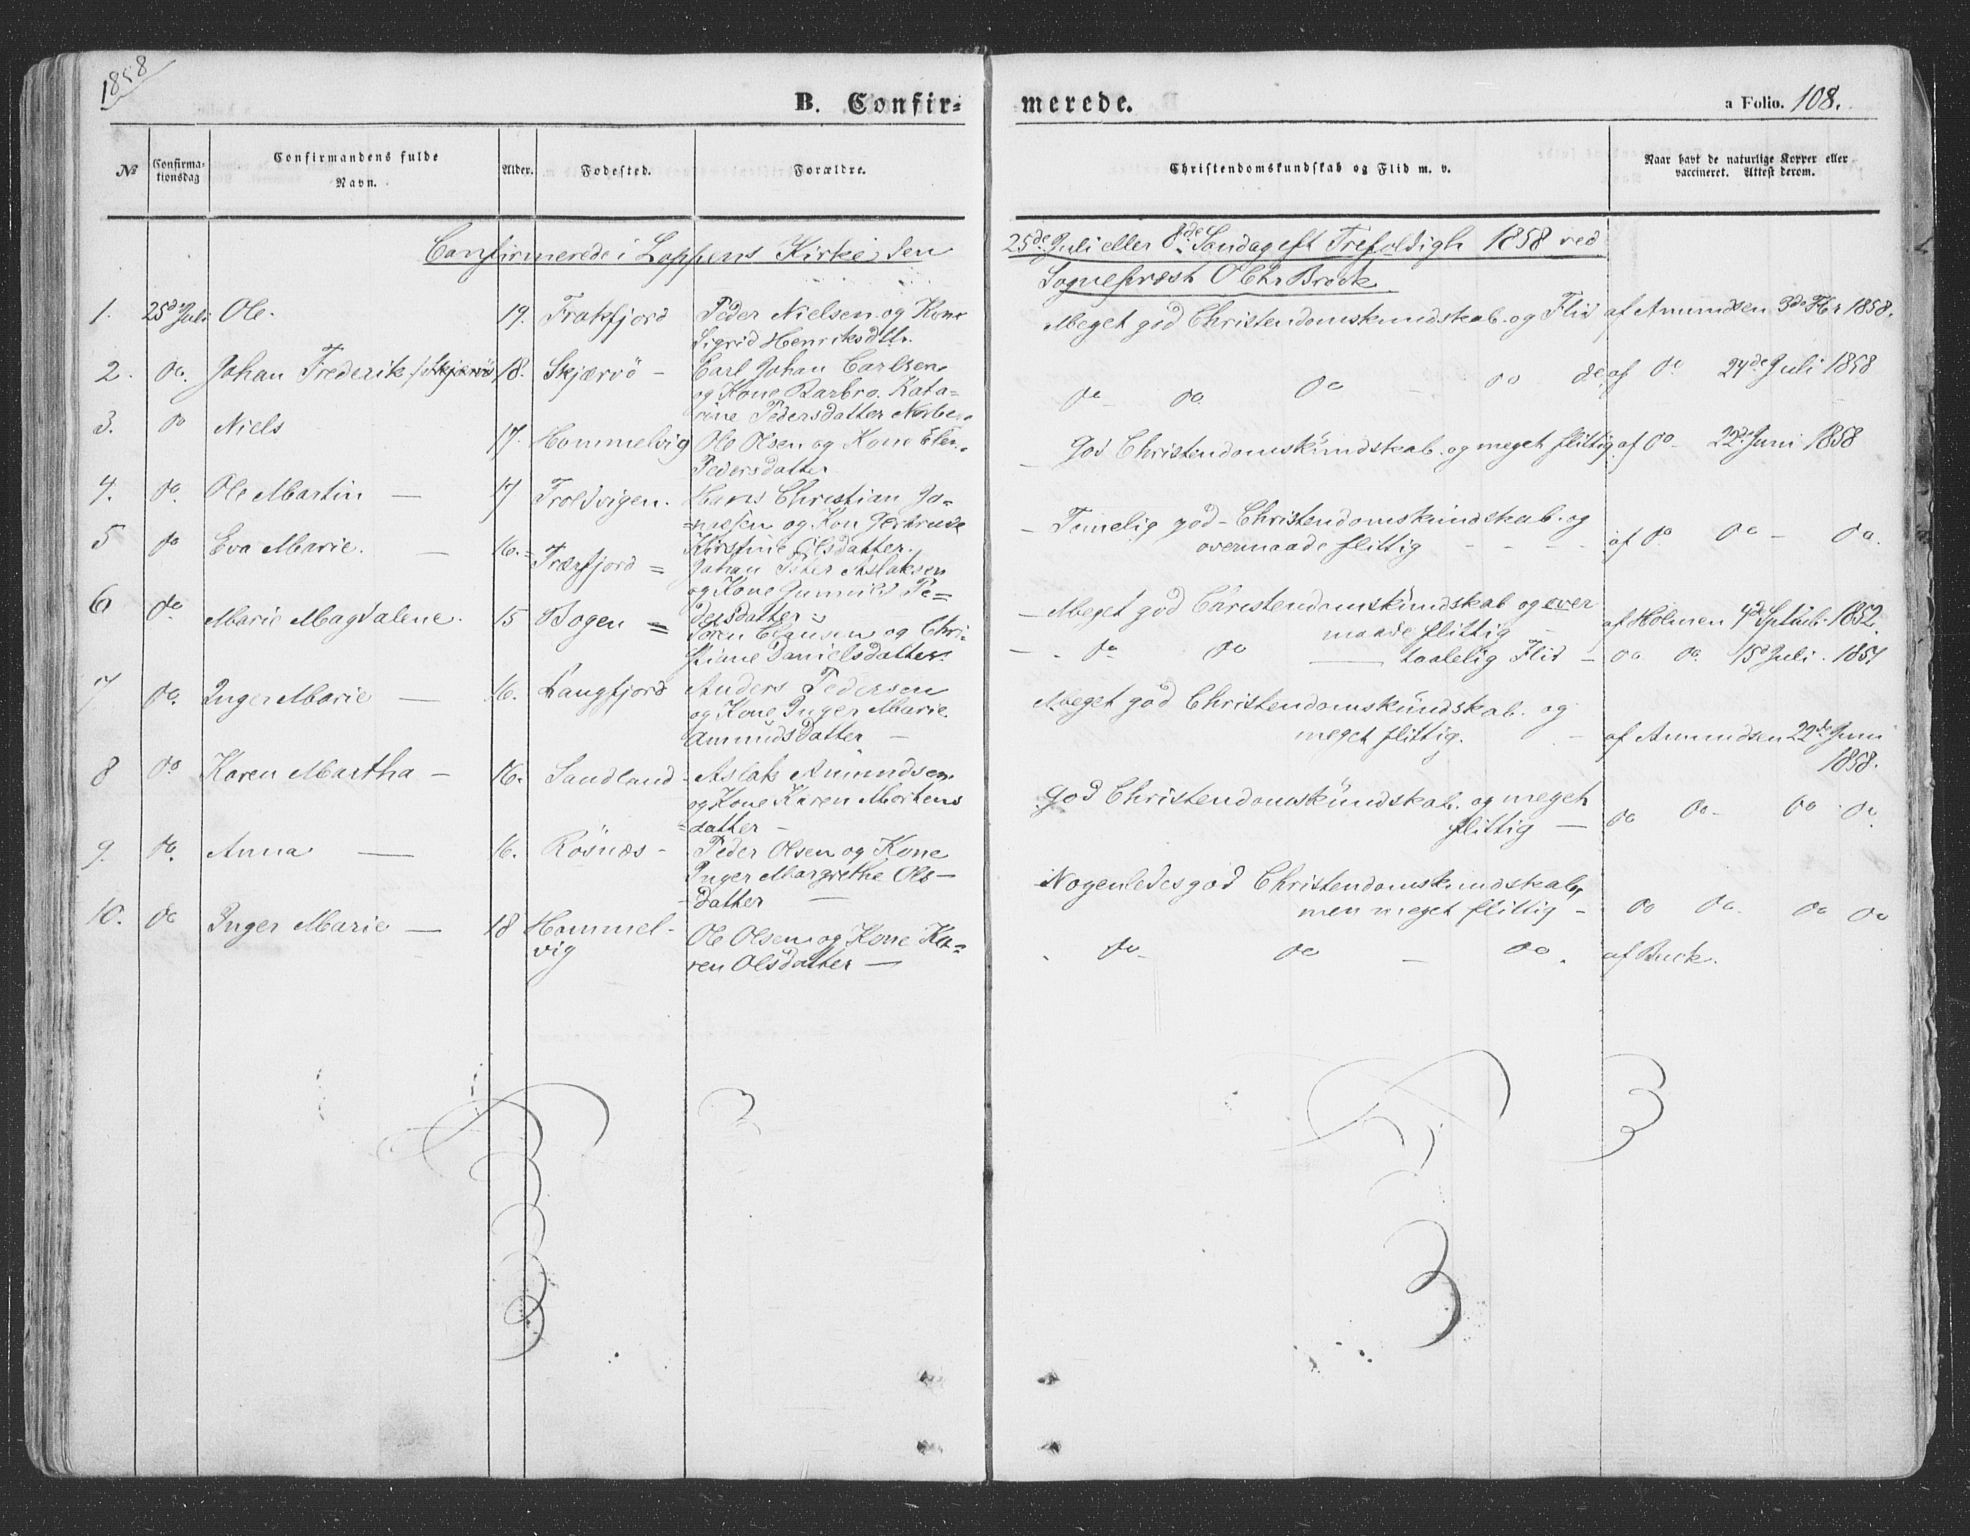 1858
B. Confir-
merede.
a Folio. 108.
№
Confirma-
tionsdag
Confirmandens fulde
Navn.
Alder.
Fødested.
Forældre.
Christendomskundskab og Flid m. v.
Naar havt de naturlige Kopper eller
vaccineret. Attest derom.
Confirmerede i Loppens Kirke, den
25de Juli eller 8de Søndag eft Trefoldigh 1858 ved
Sognepræst O Chr Brock
1. 25de Juli Ole. 19. Frakfjord Peder Nielsen og Kone
Sigrid Henriksdttr.
Meget god Christendomskundskab og Flid af Amundsen 3de Fbr 1858.
2. do. Johan Frederik 18. Skjærvö - Carl Johan Carlsen
og Kone Barbro Kata-
rine Pedersdatter
do - do. do - do do af do 24de Juli 1858
3. do Niels 17. Hommelvig Ole Olsen og Kone Elen
Pedersdatter
God Christendomskundskab og meget flittig af do - 22de Juni 1858
4. do. Ole Martin - 17 Troldvigen. Hans Christian Jo-
=nassen og Kon Gertrude
Kirstine Olsdatter.
- Temelig god - Christendomskundskab og
overmaade flittig - - - - af do do - do.
5 do Eva Marie. - 16. = Træfjord = Johan Peter Aslaksen
og Kone Gunnild Pe=
dersdatter
- Meget god Christendomskundskab og over
maade flittig - af Holmen 4de Septeb. 1852.
6 do Marie Magdalene. 15 Bogen = Sören Clausen og Chri-
stiane Danielsdatter.
- . do do - taalelig Flid - do do. 15 Juli. 1851
7 do. Inger Marie - 16. Langfjord Anders Pedersen
og Kone Inger Marie
Amundsdatter -
Meget god Christendomskundskab og
meget flittig. - af Amundsen 22de Juni
1858.
8 do Karen Martha - 16. Sandland - Aslak Amundsen
og Kone Karen Mortens
=datter -
God Christendomskundskab og meget
flittig - do do - do do.
9. do. Anna - 16. Rösnæs - Peder Olsen og Kone
Inger Margrethe Ols-
-datter -
Nogenledes god Christendomskundskab,
men meget flittig - do do. do do
10. do Inger Marie - 18 Hommel-
vig
Ole Olsen og Kone Ka-
ren Olsdatter -
. do - do - do . af Buck.